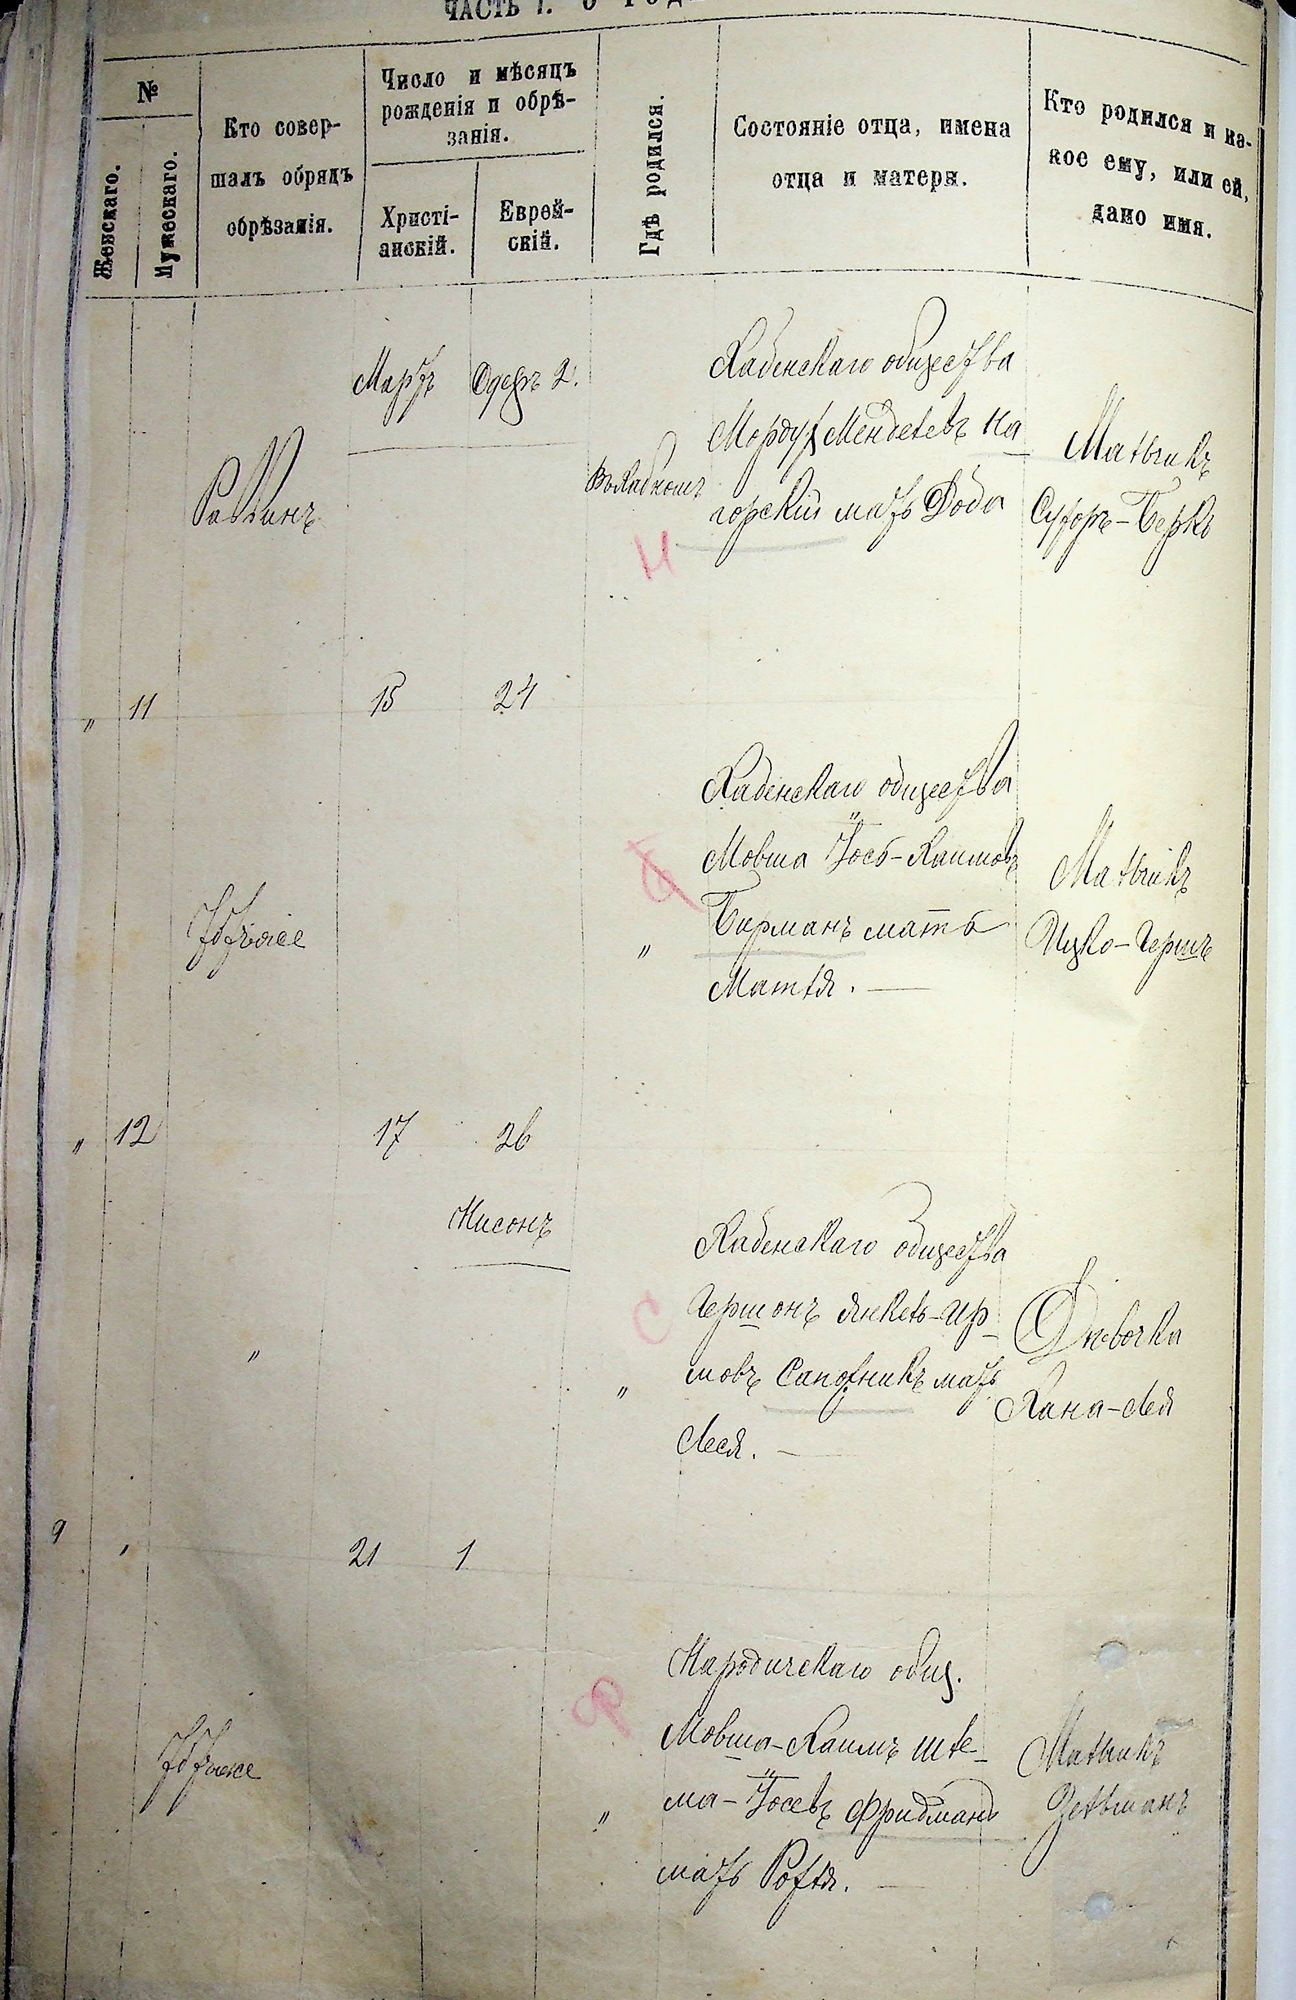 ЧАСТЬ I. О РОД
№
Женскаго.
Мужескаго.
Кто совер-
шалъ обрядъ
обрѣзанія.
Число и мѣсяцъ
рожденія и обрѣ-
занія.
Христі-
анскій.
Еврей-
скій.
Гдѣ родился.
Состояніе отца, имена
отца и матери.
Кто родился и ка-
кое ему, или ей,
дано имя.
Мартъ
Одеръ 2.
Раввинъ
въ Хабномъ
Н
Хабенскаго общества
Мордух Менделевъ На
горскій мать Доба
Мальчикъ
Сухоръ-Берко
" 11
15
24
Тотъже
"
Хабенскаго общества
Мовша Іось-Хаимовъ
Бирманъ мать
Матля.
Мальчикъ
Ицко-Гершъ
" 12
17
26
Нисонъ
"
"
С
Хабенскаго общества
Гершонъ Янкель-Ир-
мовъ Сапожникъ мать
Лея.
Дѣвочка
Хана-Лея
9 "
21
1
Тотъже
"
Ф
Народическаго общ.
Мовша-Хаимъ Шле-
ма-Іосевъ Фридманъ
мать Рохля.
Мальчикъ
Зельманъ